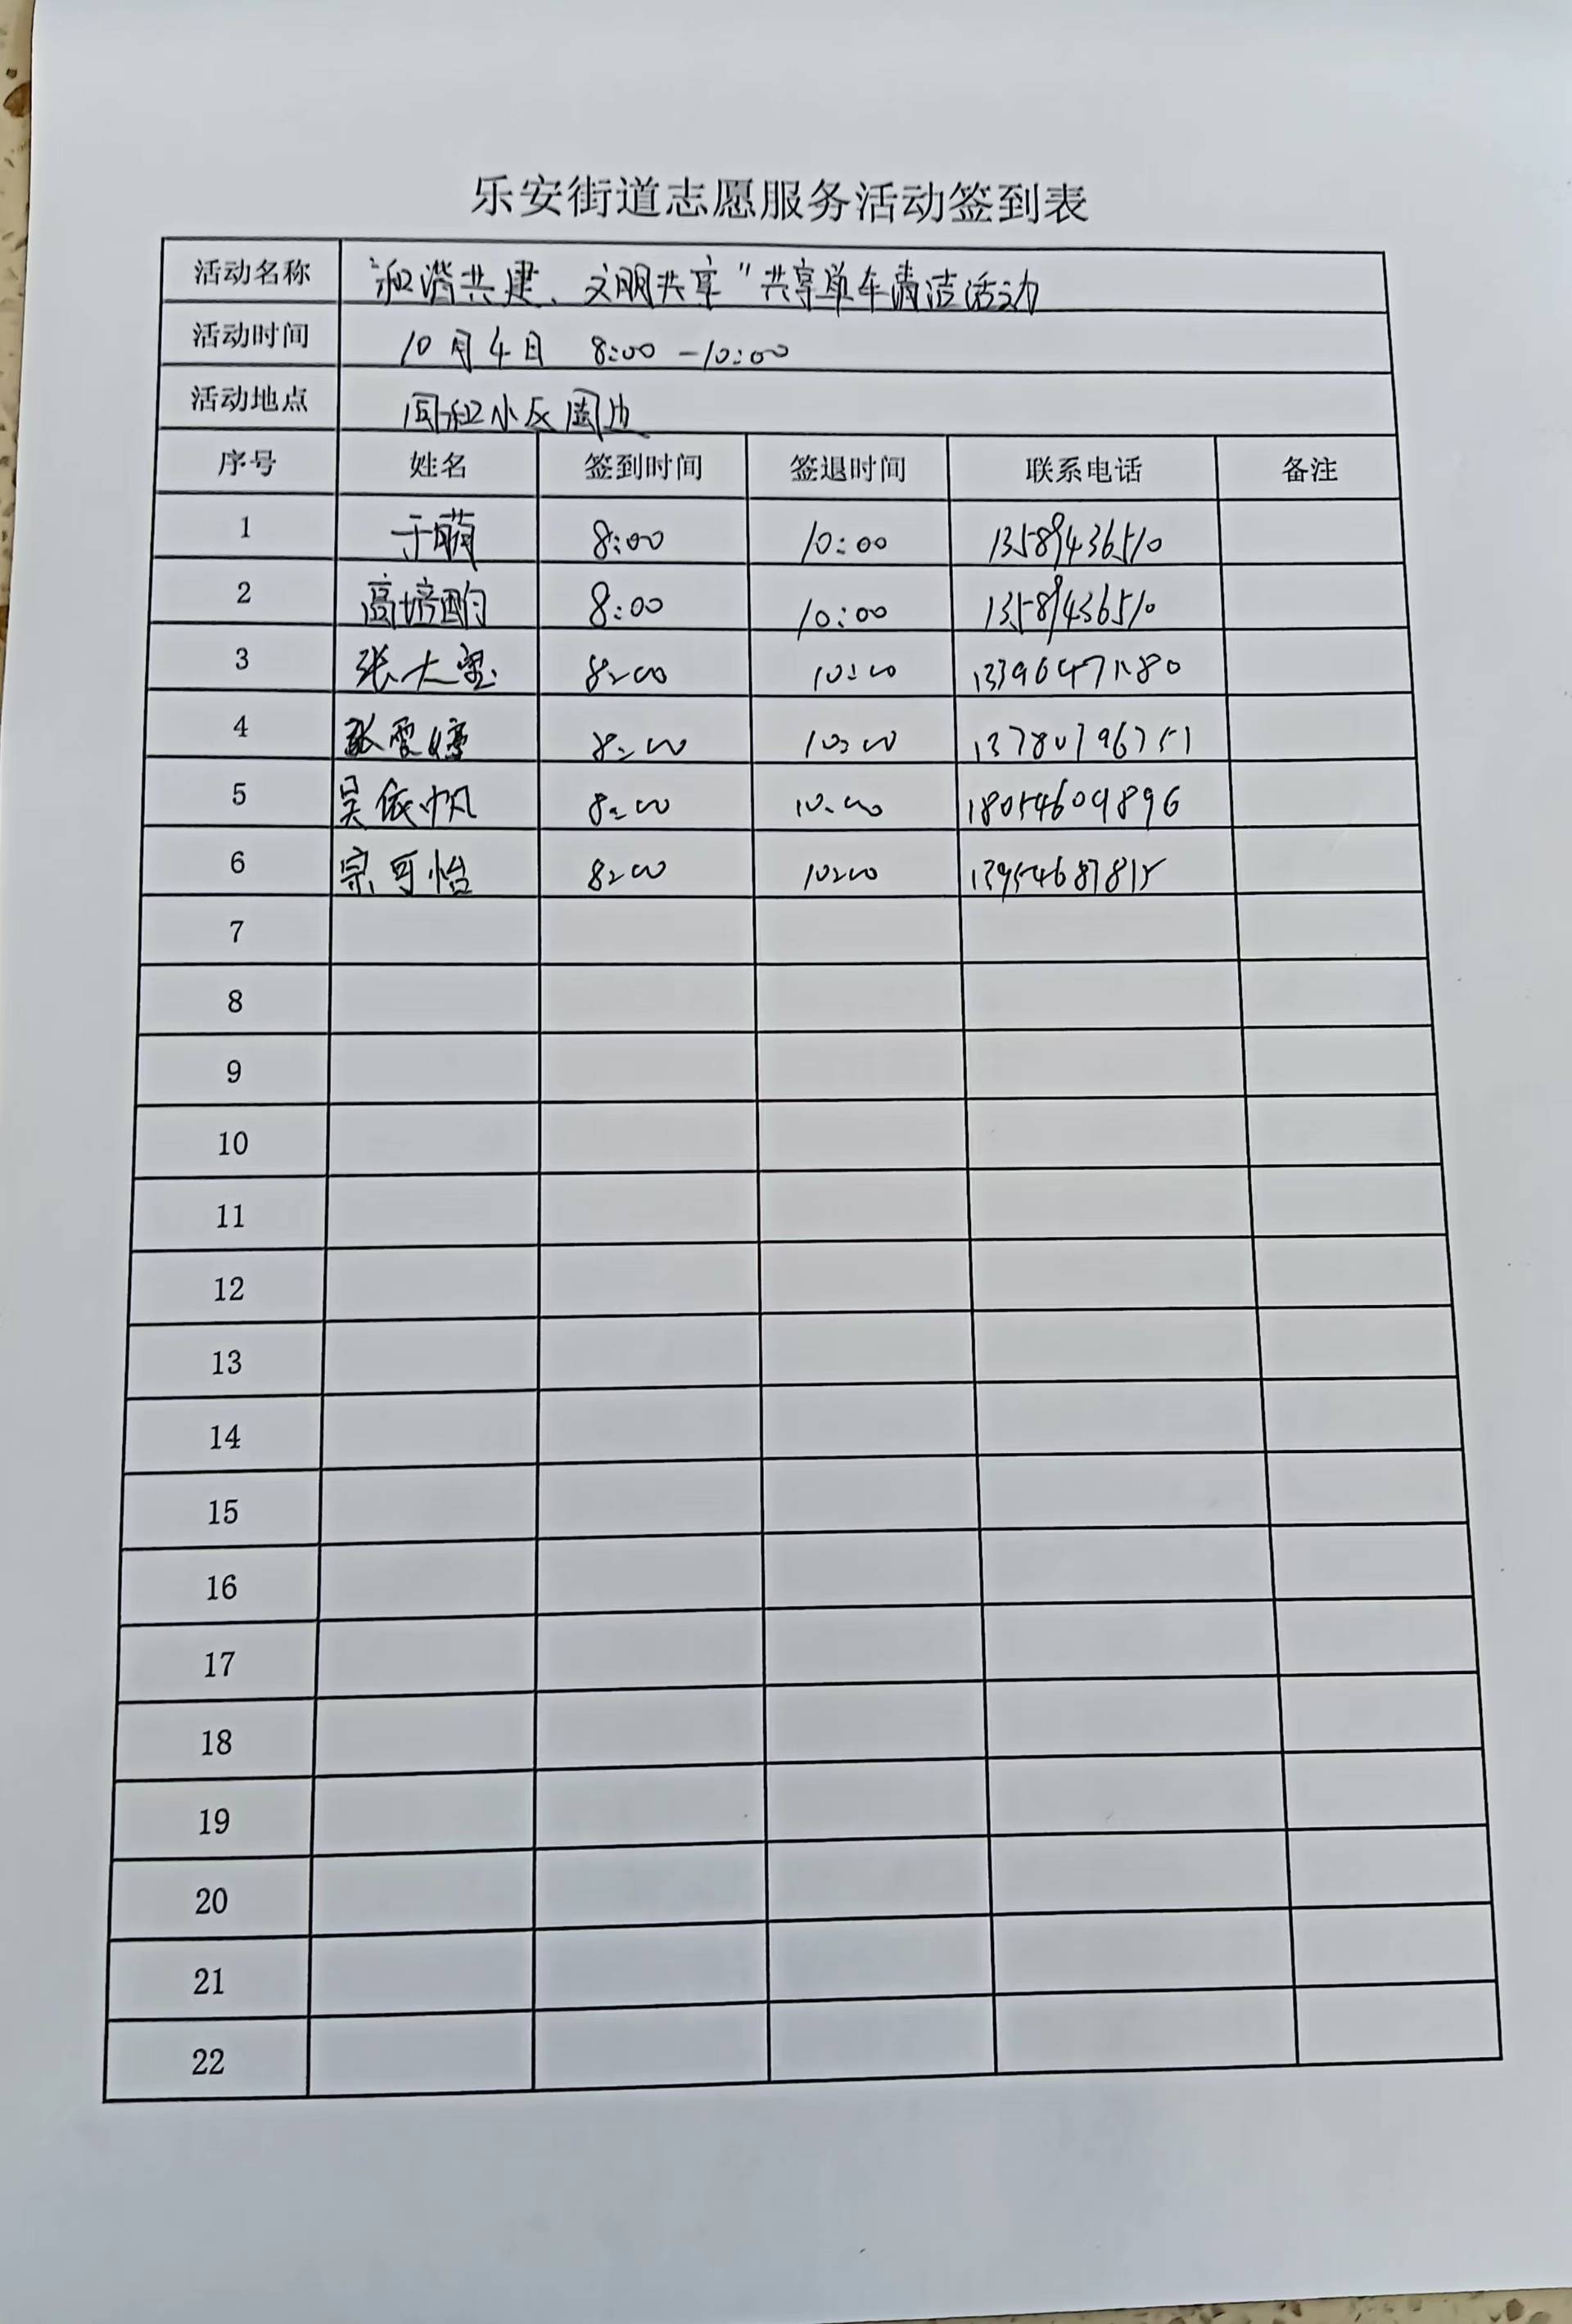 乐安街道志愿服务活动签到表
活动名称 “和谐共建、文明共享”共享单车清洁活动
活动时间 10月4日 8:00-10:00
活动地点 同和小区周边
序号 姓名 签到时间 签退时间 联系电话 备注
1 于萌 8:00 10:00 13589436510
2 高培 8:00 10:00 13589436510
3 张大宝 8:00 10:00
4 张雯婷 8:00 10:00
5 吴依帆 8:00 10:00 18054609896
6 宗可怡 8:00 10:00 13954687815
7
8
9
10
11
12
13
14
15
16
17
18
19
20
21
22